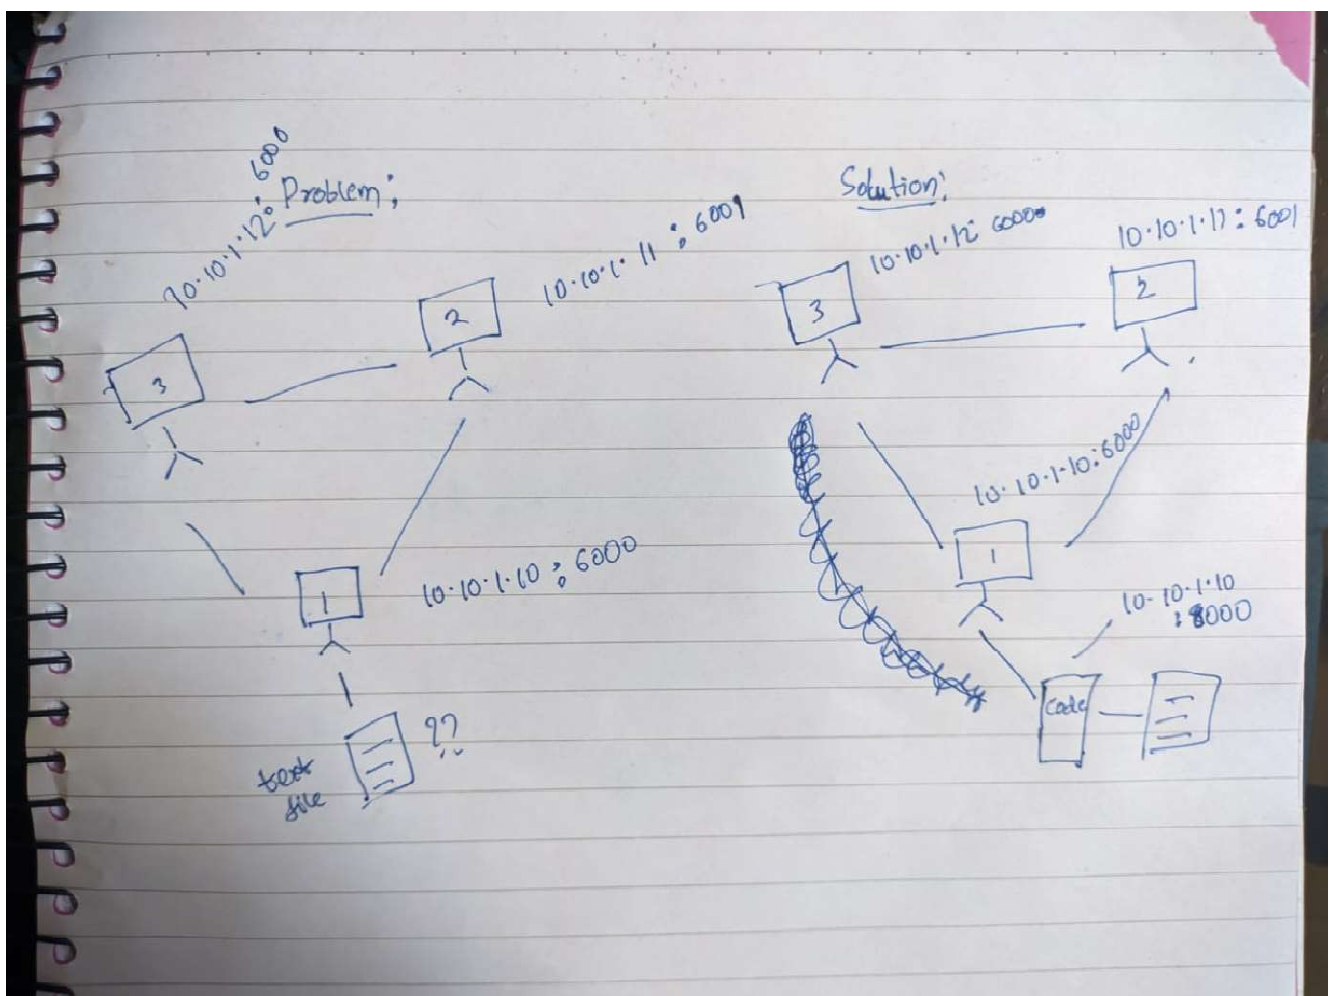 Problem:
10.10.1.12: 6000
3
2
10.10.1.11: 6001
1
10.10.1.10: 6000
text
file
??
Solution:
3
10.10.1.12: 6000
2
10.10.1.11: 6001
10.10.1.10:6000
1
10.10.1.10
:8000
Code